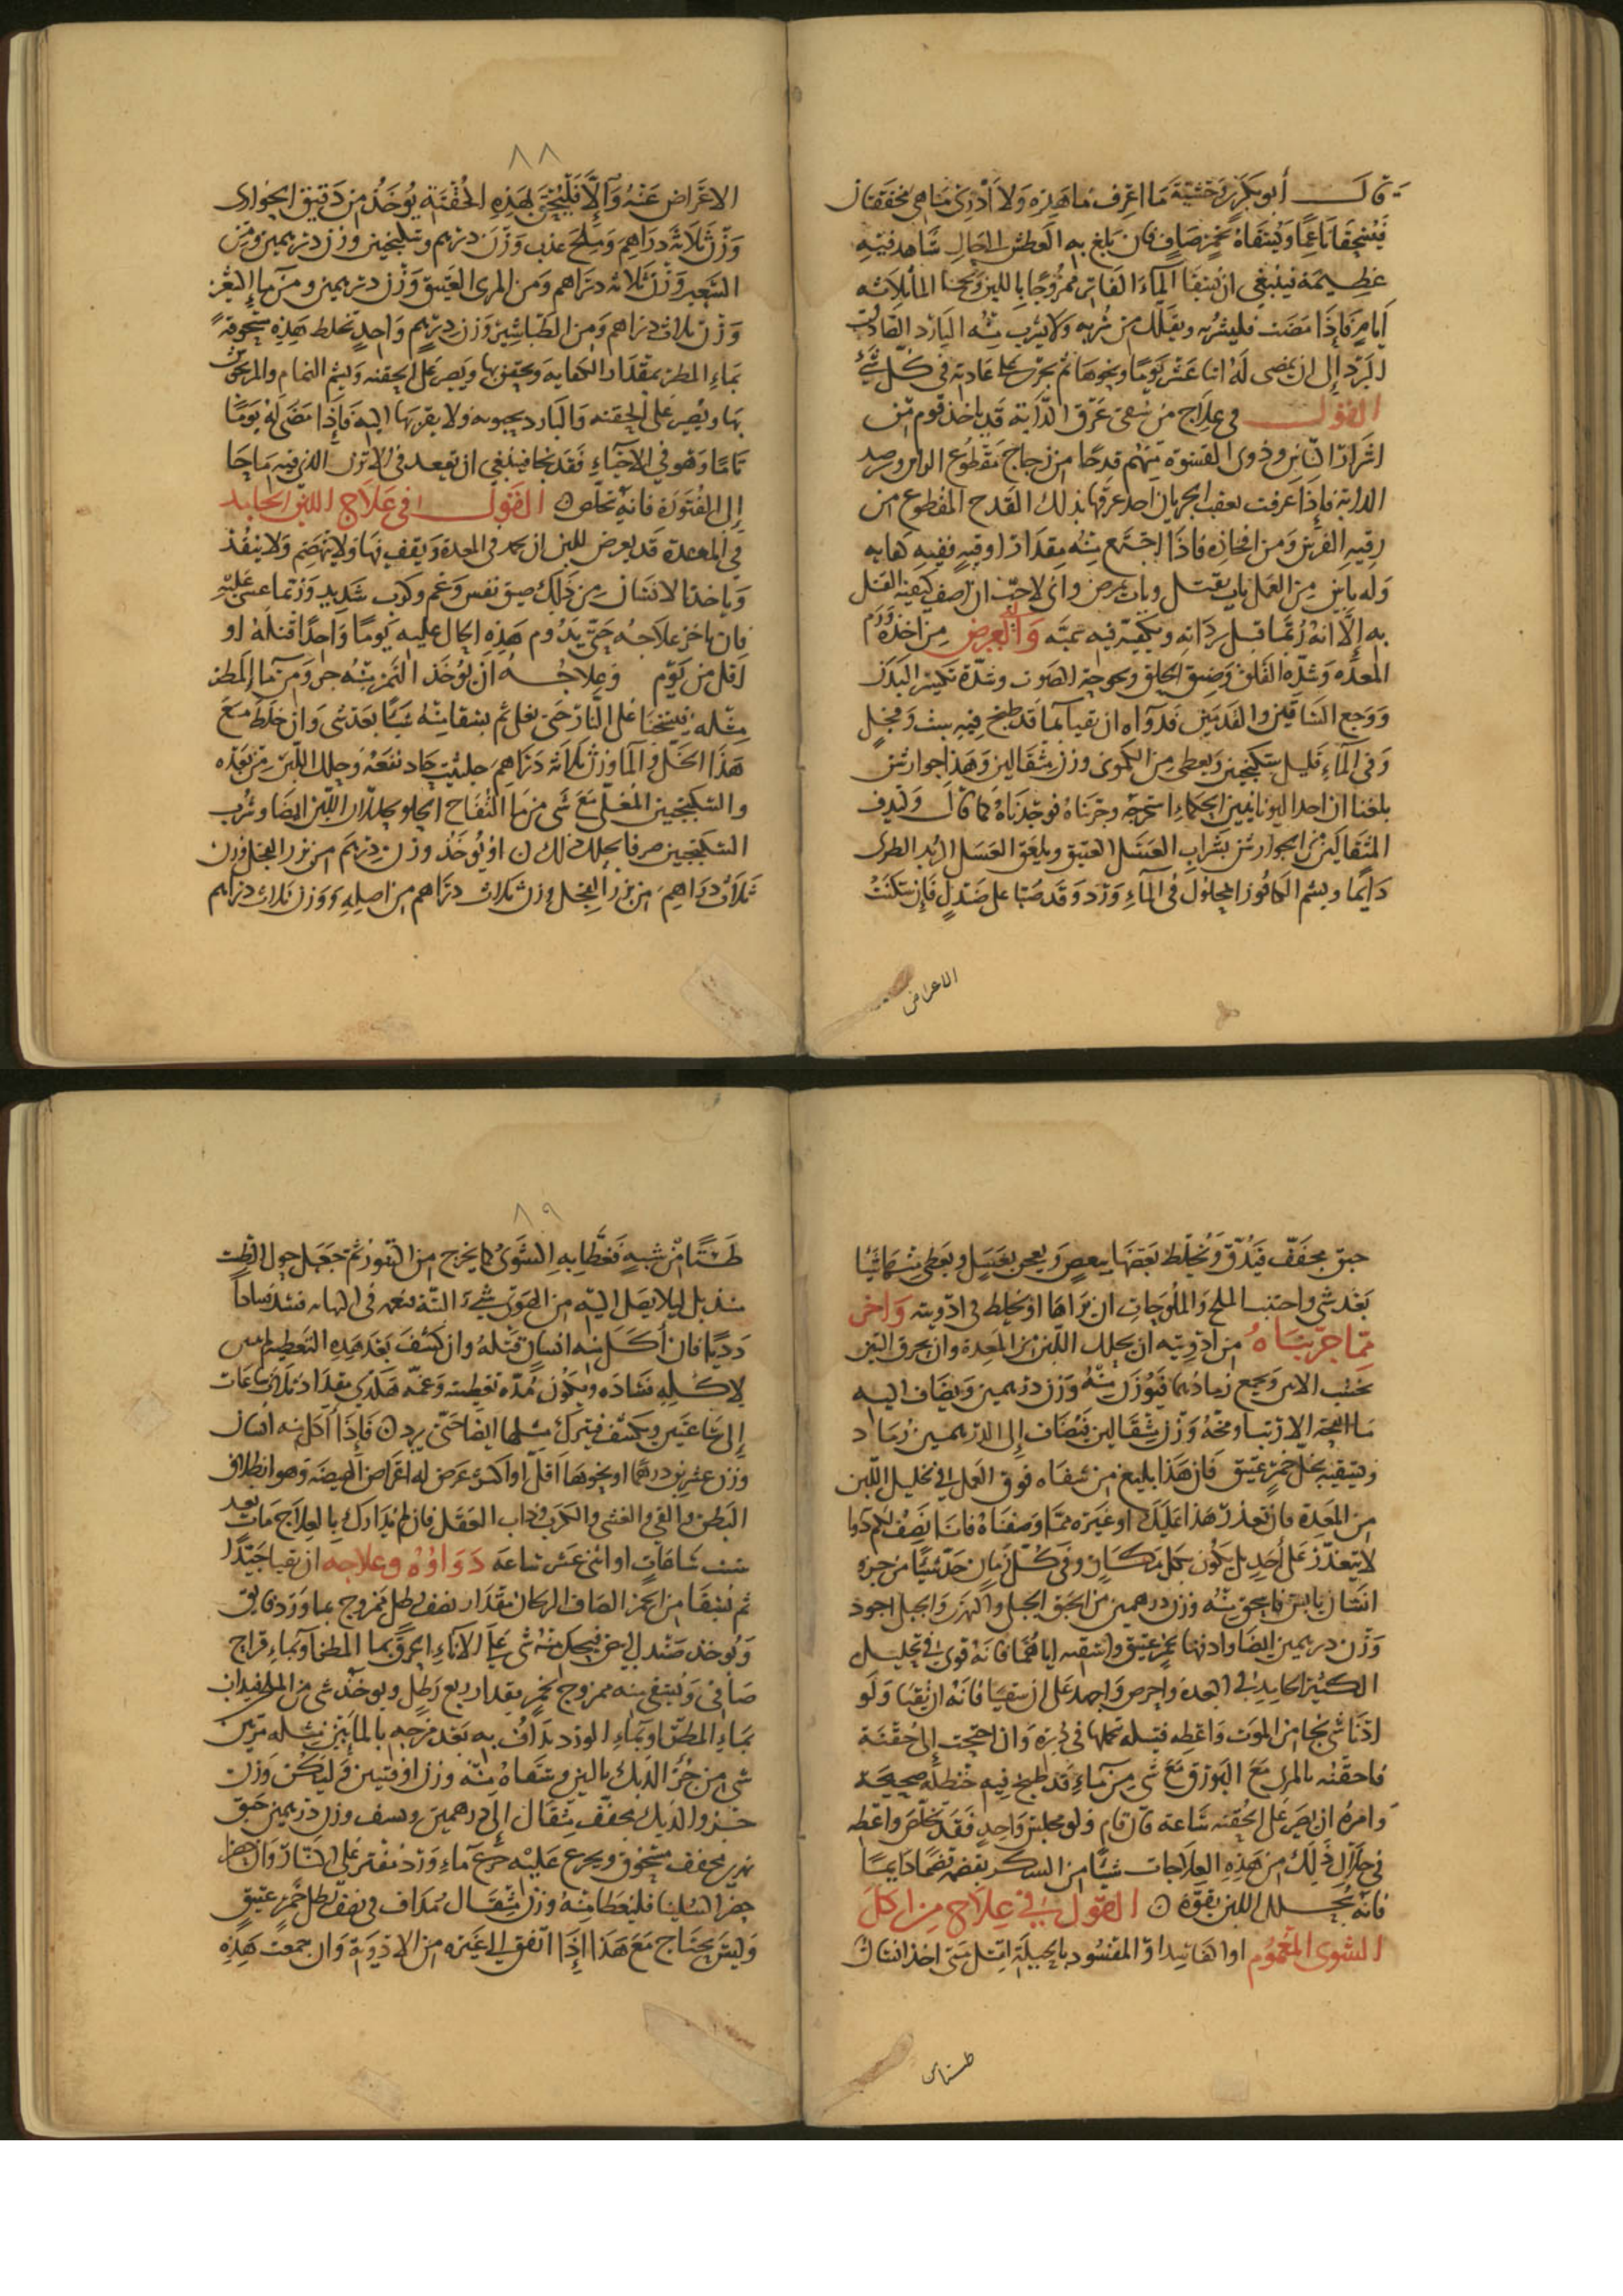 قال أبو بكر بن وحشية ما اعرف ما هذه ولا أدرى ما هي يخففان
فيسحقا ناعما ويسقاه بخمر صاف فان بلغ به العطش الى حال شاهد فيه
عظيمة فينبغي ان يسقا الماء الفاتر ممزوجا باللبن المأ ثلاثه
ايام فإذا مضت فليشربه ويقلل من شربه ولا يشرب منه البارد الصادق
البرد إلى ان يمضى له اثنا عشر يوما ونحوها ثم يجري على عادته في كل شيء
القول في علاج من سقي عرق الدابة قد ياخذ قوم من
اشرار الناس وذوى القسوة منهم قدحا من زجاج مقطوع الراس
الدابة فإذا عرقت بعقب الجريان اخذ عرقها بذلك القدح المقطوع من
رقبه الفرس ومن افخاذه فاذا اجتمع منه مقدار اوقيه ففيه كفايه
وله باين من العمل باب يقتل وباب يمرض واني لا احب ان اصف كيفية القتل
به إلا انه ربما قتل ويكفيه فيه والعرض له من اخذه ورم
المعده وشدة القلق وضيق الحلق وبحوحة الصوت وشدة تكسر البدن
ووجع الساقين والقدمين فدواه ان يقيا بما قد طبخ فيه شبث وفجل
وفي الماء قليل سكنجبين ويعطى من الكموني وزن مثقالين وهذا جوارشن
بلغنا ان احد اليونانيين الحكماء استخرجه وجربناه فوجدناه كما قال وليدف
المثقالين من الجوارشن بشراب العسل العتيق ويلعق العسل الزبد الطرى
دايما ويشم الكافور المحلول في الماء ورد وقد صبا على صندل فإن سكنت
الاعراض
٨٨
الاعراض عنه والا فليحقن بهذه الحقنة يوخذ من دقيق الحوارى
وزن ثلاثة دراهم وملح عذب وزن درهم وسكبينج وزن درهمين ومن
الشعير وزن ثلاثه دراهم ومن المرى العتيق وزن درهمين ومن ما
وزن ثلاث دراهم ومن الطباشير وزن درهم واحد تخلط هذه مسحوقة
بماء المطر بمقدار الكفايه ويحقن بها ويصبر على الحقنه ويشم النمام والمرزنجوش
بها ويصبر على الحقنه والبارد يجيبونه ولا يقربها البته فإذا مضى له يوما
تاما وهو في الاحياء فقد نجا فينبغي ان يقعد في الابزن الذي فيه ما حار
إلى الفتورة فانه يخلص القول في علاج اللبن الجامد
في المعدة قد يعرض للبن ان يجمد في المعدة ويقف فيها ولا ينهضم ولا ينفذ
وياخذ الانسان من ذلك ضيق نفس وغم وكرب شديد وربما غشي عليه
فان تاخر علاجه حتى يدوم هذه الحال عليه يوما واحدا قتله او
اقل من يوم وعلاجه ان يؤخذ التمر منه جز ومن ماء المطر
مثله فيسخنا على النار حتى يغلى ثم يسقا منه شيا بعد شى وان خلط مع
هذا الخل والماء وزن ثلاثه دراهم حلتيت جاد نفعه وحلل اللبن من بعده
والسكنجبين المغلى مع شى من ما التفاح الحلو يحللان اللبن ايضا وشرب
السكنجبين صرفا يحلل ذلك او يوخذ وزن درهم من بزر الفجل وزن
ثلاث دراهم من بزر الفجل وزن ثلاث دراهم من اصله ووزن ثلاث دراهم
حبق مجفف فيدق ويخلط بعضها ببعض ويعجن بعسل ويعطى منهما شيئا
بعد شي واجتنب الملح والملوحات ان تراها او تخلط في ادويته واخر
مما جربناه من ادويته ان يحلل اللبن من المعدة وان يحرق التين
خشب الاس ويجمع رمادهما فيوزن منه وزن درهمين ويضاف اليه
من انفحة الارنب او مخه وزن مثقالين فيضاف إلى الدرهمين رماد
ويسقيه بخل خمر عتيق فان هذا بليغ من شفاه فوق العمل في تحليل اللبن
من المعدة فان تعذر هذا عليك او غيره مما وصفناه فانا نصف لكم دوا
لا يتعذر على احد بل يكون بكل مكان وفي كل زمان خذ شيا من خره
انسان يابس فاسحق منه وزن درهمين من الحبق الجبلي والنهري والجبل اجود
وزن درهمين ايضا وادفها بخمر عتيق واسقه اياهما فانه قوى في تحليل
الكثير الجامد في المعده واحرص واجهد على ان يتقيا فانه ان تقيا ولو
ادنا شي نجا من الموت واعطه فتيله تحملها في دبره وان احتجت إلى حقنة
فاحقنه بالمرى مع البورق مع شي من ماء قد طبخ فيه حنظله صحيحة
وامره ان يصبر على الحقنه ساعة فان قام ولو مجلس واحد فقد تخلص واعطه
في خلال ذلك من هذه العلاجات شيئا من السكر يقضمه قضما دايما
فانه يحلل اللبن بقوة القول في علاج من اكل
الشوى المغموم او المفسود بالحيلة القتل متى اخذ انسان
طستا من
٨٩
طستا من شبه فغطا به الشوى كما يخرج من التنور ثم جعل حول الطست
منديل ليلا يصل اليه من الهوى شيء البتة في فسد فسادا
رديا فان أكل منه انسان قتله وان كشف بعد هذه التغطية ليس
لاكله فساده ويكون مدة تغطيته وغمه هكذى مقدار ثلاث ساعات
إلى ساعتين ويكشف فيترك مثلها ايضا حتى يبرد فإذا أكل منه انسان
وزن عشرين درهما او نحوها اقل او اكثر عرض له اعراض الهيضة وهو انطلاق
البطن والقي والغشى والكرب وذهاب العقل فان لم يتدارك بالعلاج مات بعد
ست ساعات او اثنى عشر ساعة دواؤه وعلاجه ان يقيا جيدا
ثم يسقا من الخمر الصاف الريحان مقدار نصف رطل ممزوج بما ورد فايق
ويوخذ صندل فيحك منه شي على الاناء بما المطر او بماء قراح
صافي ويسقي منه ممزوج بخمر مقدار ربع رطل ويوخذ شى من
بماء المطر او بماء الورد يداف به بعد مزجه بالماين مثله مرتين
شى من خرؤ الديك باللبن وسقاه منه وزن اوقيتين وليكن وزن
خرؤ الديك مجفف مثقال إلى درهمين ونصف وزن درهمين حبق
نهري مجفف مسحوق ويجرع عليه جرع ماء ورد مفتر على النار وان حضر
السليثا فليعطا منه وزن مثقال مداف في نصف رطل خمر عتيق
وليس يحتاج مع هذا إذا اتفق إلى غيره من الادوية وان جمعت هذه